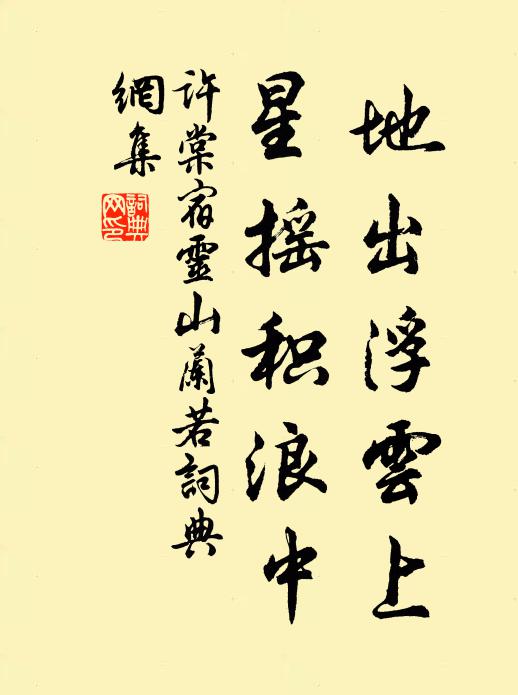 地出浮雲上
星摇积浪中
许棠宿靈山蘭若詞典
網集
詞典网印